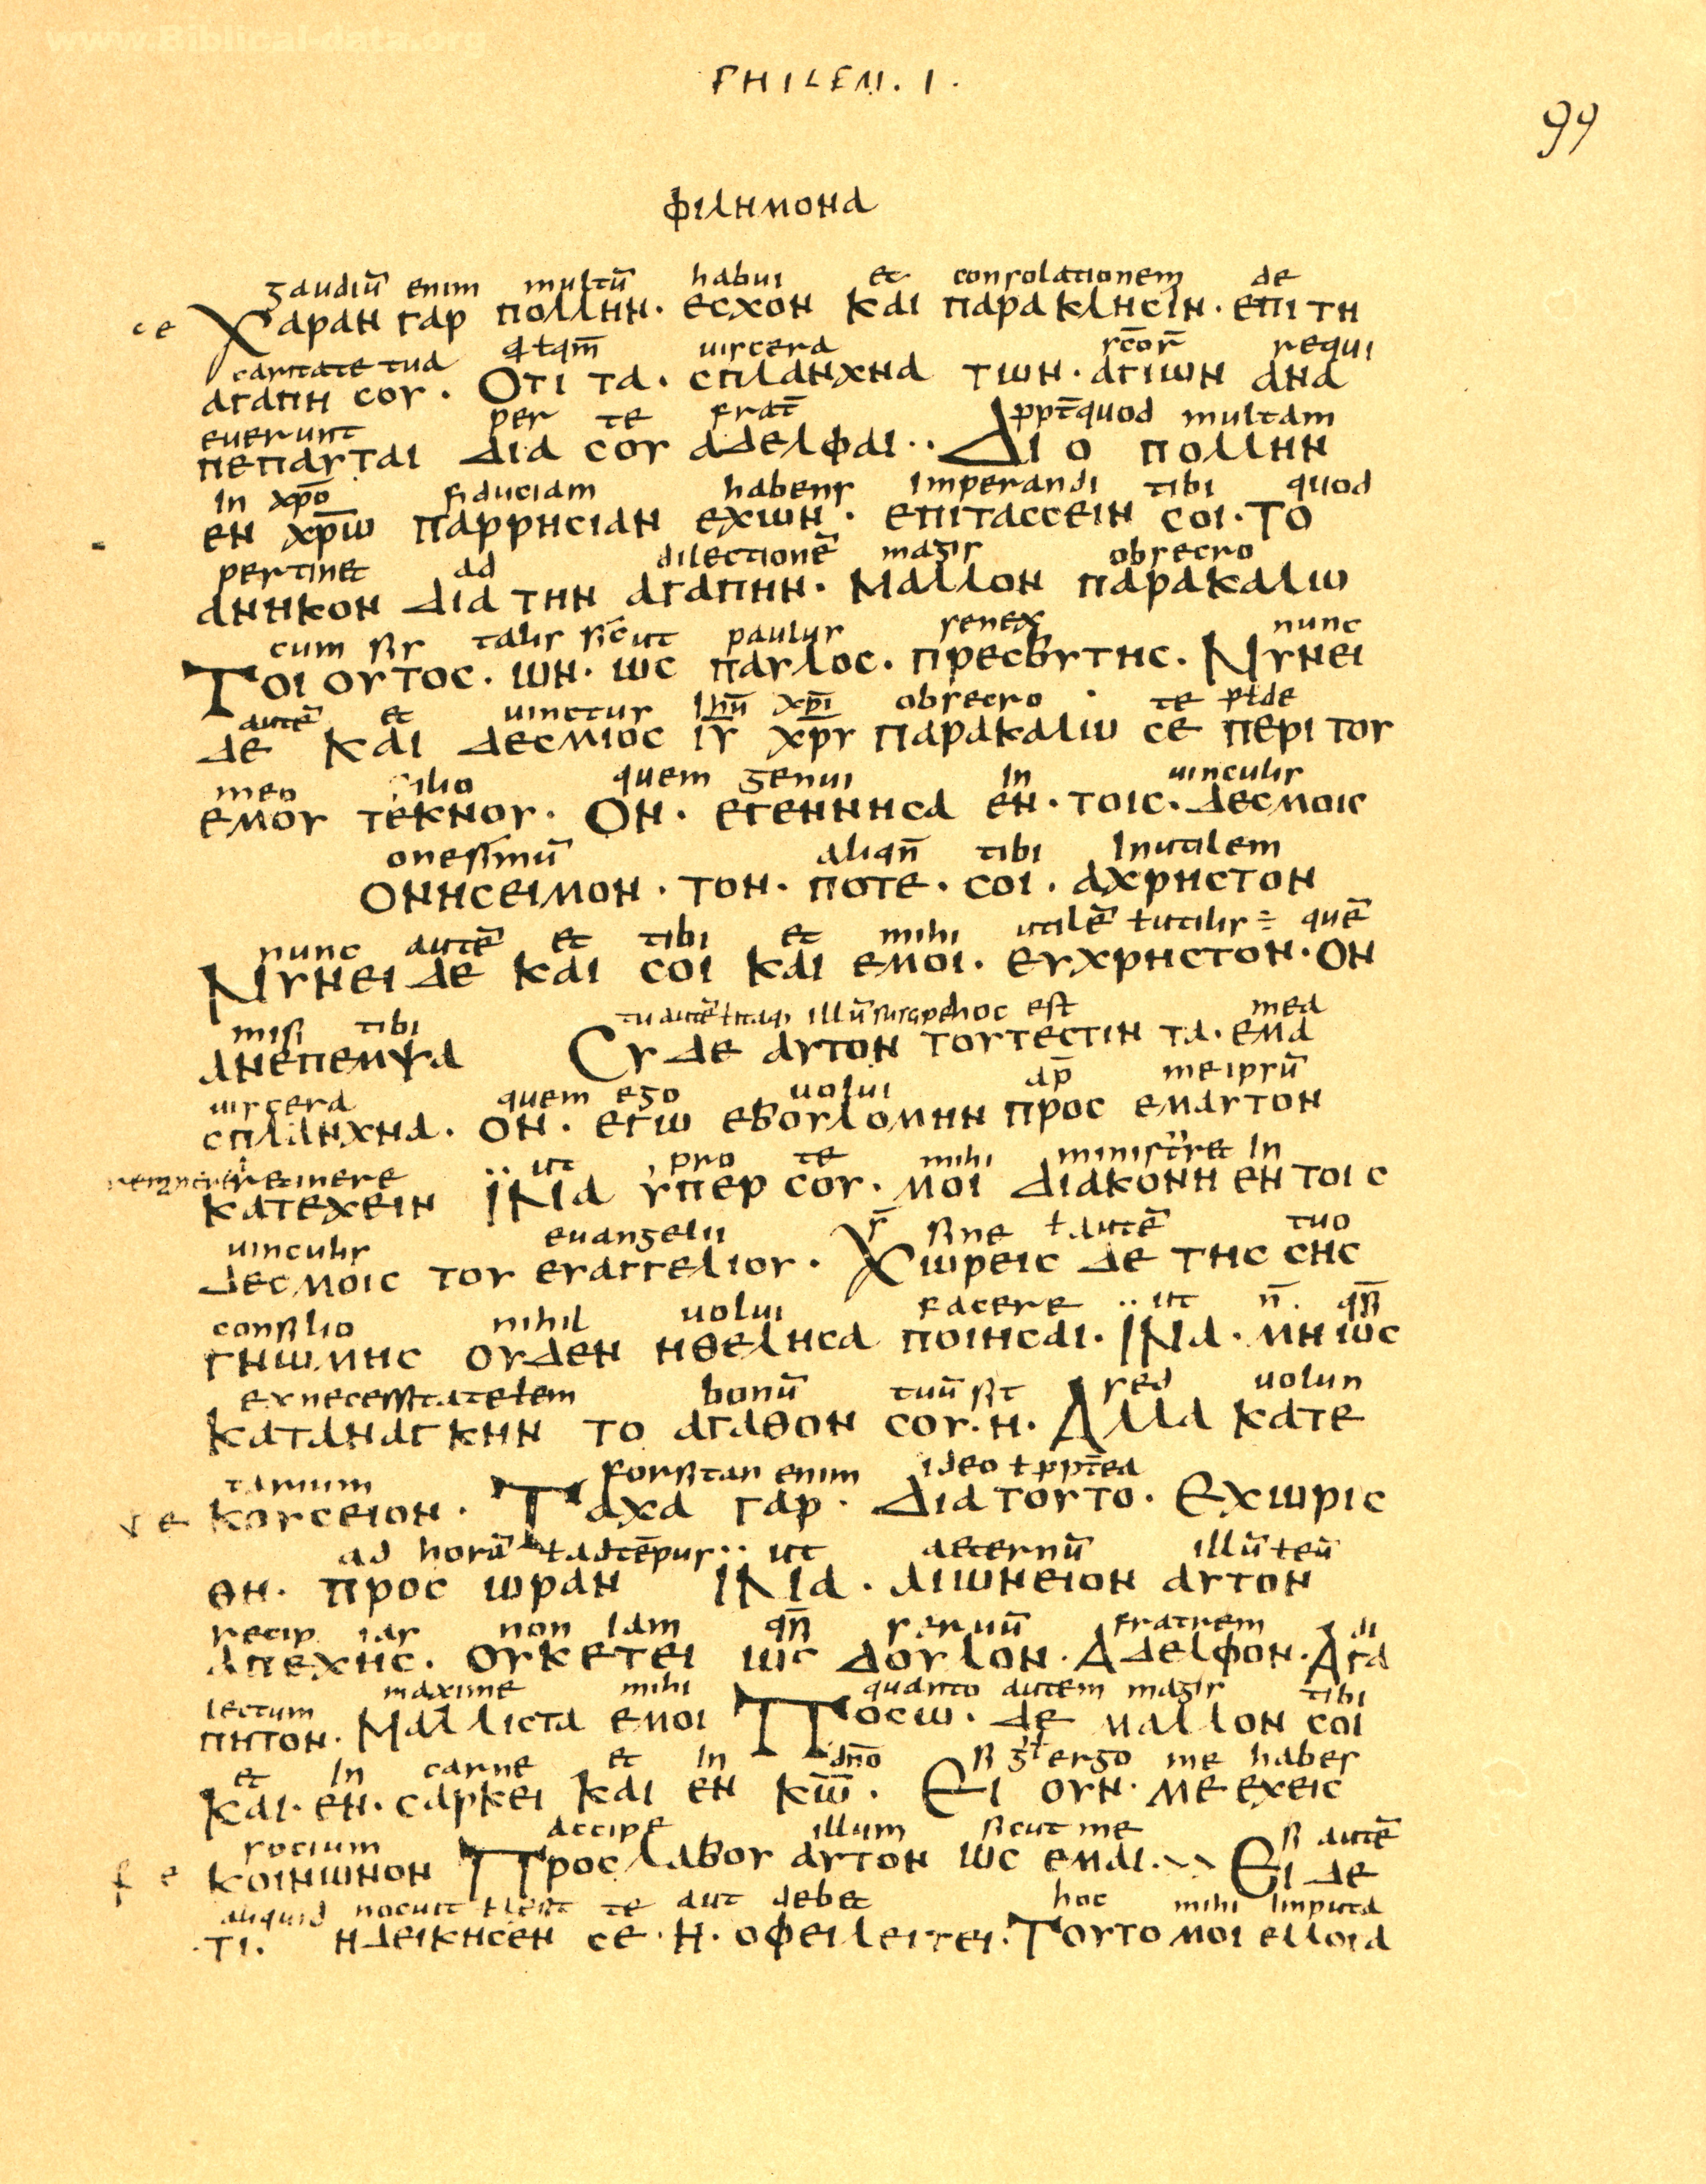 www.Biblical-data.org
PHILEM. I.
99
ΦΙΛΗΜΟΝΑ
gaudiū enim multū habui et consolationem de
ce ΧΑΡΑΝ ΓΑΡ ΠΟΛΛΗΝ· ΕCΧΟΝ ΚΑΙ ΠΑΡΑΚΛΗCΙΝ· ΕΠΙ ΤΗ
caritate tua viscera scōr requi
ΑΓΑΠΗ CΟΥ· ΟΤΙ ΤΑ· CΠΛΑΝΧΝΑ ΤΩΝ· ΑΓΙΩΝ ΑΝΑ
everunt per te frat̄ ppt̄quod multam
ΠΕΠΑΥΤΑΙ ΔΙΑ CΟΥ ΑΔΕΛΦΑΙ·· ΔΙ Ο ΠΟΛΛΗΝ
in xp̄o fiduciam habens imperandi tibi quod
ΕΝ ΧΡ̅Ω ΠΑΡΡΗCΙΑΝ ΕΧΩΝ· ΕΠΙΤΑCCΕΙΝ CΟΙ· ΤΟ
pertinet ad dilectionē magis obsecro
ΑΝΗΚΟΝ ΔΙΑ ΤΗΝ ΑΓΑΠΗΝ· ΜΑΛΛΟΝ ΠΑΡΑΚΑΛΩ
cum sis talis sicut paulus senex nunc
ΤΟΙ ΟΥΤΟC· ΩΝ· ΩC ΠΑΥΛΟC· ΠΡΕCΒΥΤΗC· ΝΥΝΕΙ
autē et uinctus ihū xpī obsecro te ꝑ ɫ de
ΔΕ ΚΑΙ ΔΕCΜΙΟC ΙΥ̅ ΧΡΥ̅ ΠΑΡΑΚΑΛΩ CΕ ΠΕΡΙ ΤΟΥ
meo filio quem genui in uinculis
ΕΜΟΥ ΤΕΚΝΟΥ· ΟΝ· ΕΓΕΝΝΗCΑ ΕΝ· ΤΟΙC· ΔΕCΜΟΙC
onesimū aliqn̄ tibi Inutilem
ΟΝΗCΕΙΜΟΝ· ΤΟΝ· ΠΟΤΕ· CΟΙ· ΑΧΡΗCΤΟΝ
nunc autē et tibi et mihi utilē ɫ utilis quē
ΝΥΝΕΙ ΔΕ ΚΑΙ CΟΙ ΚΑΙ ΕΜΟΙ· ΕΥΧΡΗCΤΟΝ· ΟΝ
misi tibi tu autē illū hoc est mea
ΑΝΕΠΕΜΨΑ CΥ ΔΕ ΑΥΤΟΝ ΤΟΥΤΕCΤΙΝ ΤΑ· ΕΜΑ
uiscera quem ego uolui ap̄ meipsū
CΠΛΑΝΧΝΑ· ΟΝ· ΕΓΩ ΕΒΟΥΛΟΜΗΝ ΠΡΟC ΕΜΑΥΤΟΝ
retinere ut pro te mihi ministret in
ΚΑΤΕΧΕΙΝ ΙΝΑ ΥΠΕΡ CΟΥ· ΜΟΙ ΔΙΑΚΟΝΗ ΕΝ ΤΟΙC
uinculis euangelii sine ɫ autē tuo
ΔΕCΜΟΙC ΤΟΥ ΕΥΑΓΓΕΛΙΟΥ· ΧΩΡΕΙC ΔΕ ΤΗC CΗC
consilio nihil uolui facere ut n̄. qn̄
ΓΝΩΜΗC ΟΥΔΕΝ ΗΘΕΛΗCΑ ΠΟΙΗCΑΙ· ΙΝΑ· ΜΗ ΩC
ex necessitate ɫ em bonū tuū sit sed uolun
ΚΑΤΑΝΑΓΚΗΝ ΤΟ ΑΓΑΘΟΝ CΟΥ· Η· ΑΛΛΑ ΚΑΤΕ
tarium forsitan enim ideo ɫ ppt̄ea
ΚΟΥCΕΙΟΝ· ΤΑΧΑ ΓΑΡ· ΔΙΑ ΤΟΥΤΟ· ΕΧΩΡΙC
ad horā ɫ ad tēpus ut aeternū illū ɫ eū
ΘΗ· ΠΡΟC ΩΡΑΝ ΙΝΑ· ΑΙΩΝΕΙΟΝ ΑΥΤΟΝ
recip ias non iam qn̄ seruū fratrem di
ΑΠΕΧΗC· ΟΥΚΕΤΕΙ ΩC ΔΟΥΛΟΝ· ΑΔΕΛΦΟΝ· ΑΓΑ
lectum maxime mihi quanto autem magis tibi
ΠΗΤΟΝ· ΜΑΛΛΙCΤΑ ΕΜΟΙ ΠΟCΩ· ΔΕ ΜΑΛΛΟΝ CΟΙ
et in carne et in dn̄o si ergo me habes
ΚΑΙ· ΕΝ· CΑΡΚΕΙ ΚΑΙ ΕΝ ΚΩ̅· ΕΙ ΟΥΝ· ΜΕ ΕΧΕΙC
socium accipe illum sicut me si autē
ΚΟΙΝΩΝΟΝ ΠΡΟCΛΑΒΟΥ ΑΥΤΟΝ ΩC ΕΜΑΙ· ΕΙ ΔΕ
aliquid nocuit te aut debet hoc mihi Imputa
ΤΙ· ΗΔΕΙΚΗCΕΝ CΕ· Η· ΟΦΕΙΛΕΙ ΤΕΙ· ΤΟΥΤΟ ΜΟΙ ΕΛΛΟΓΑ